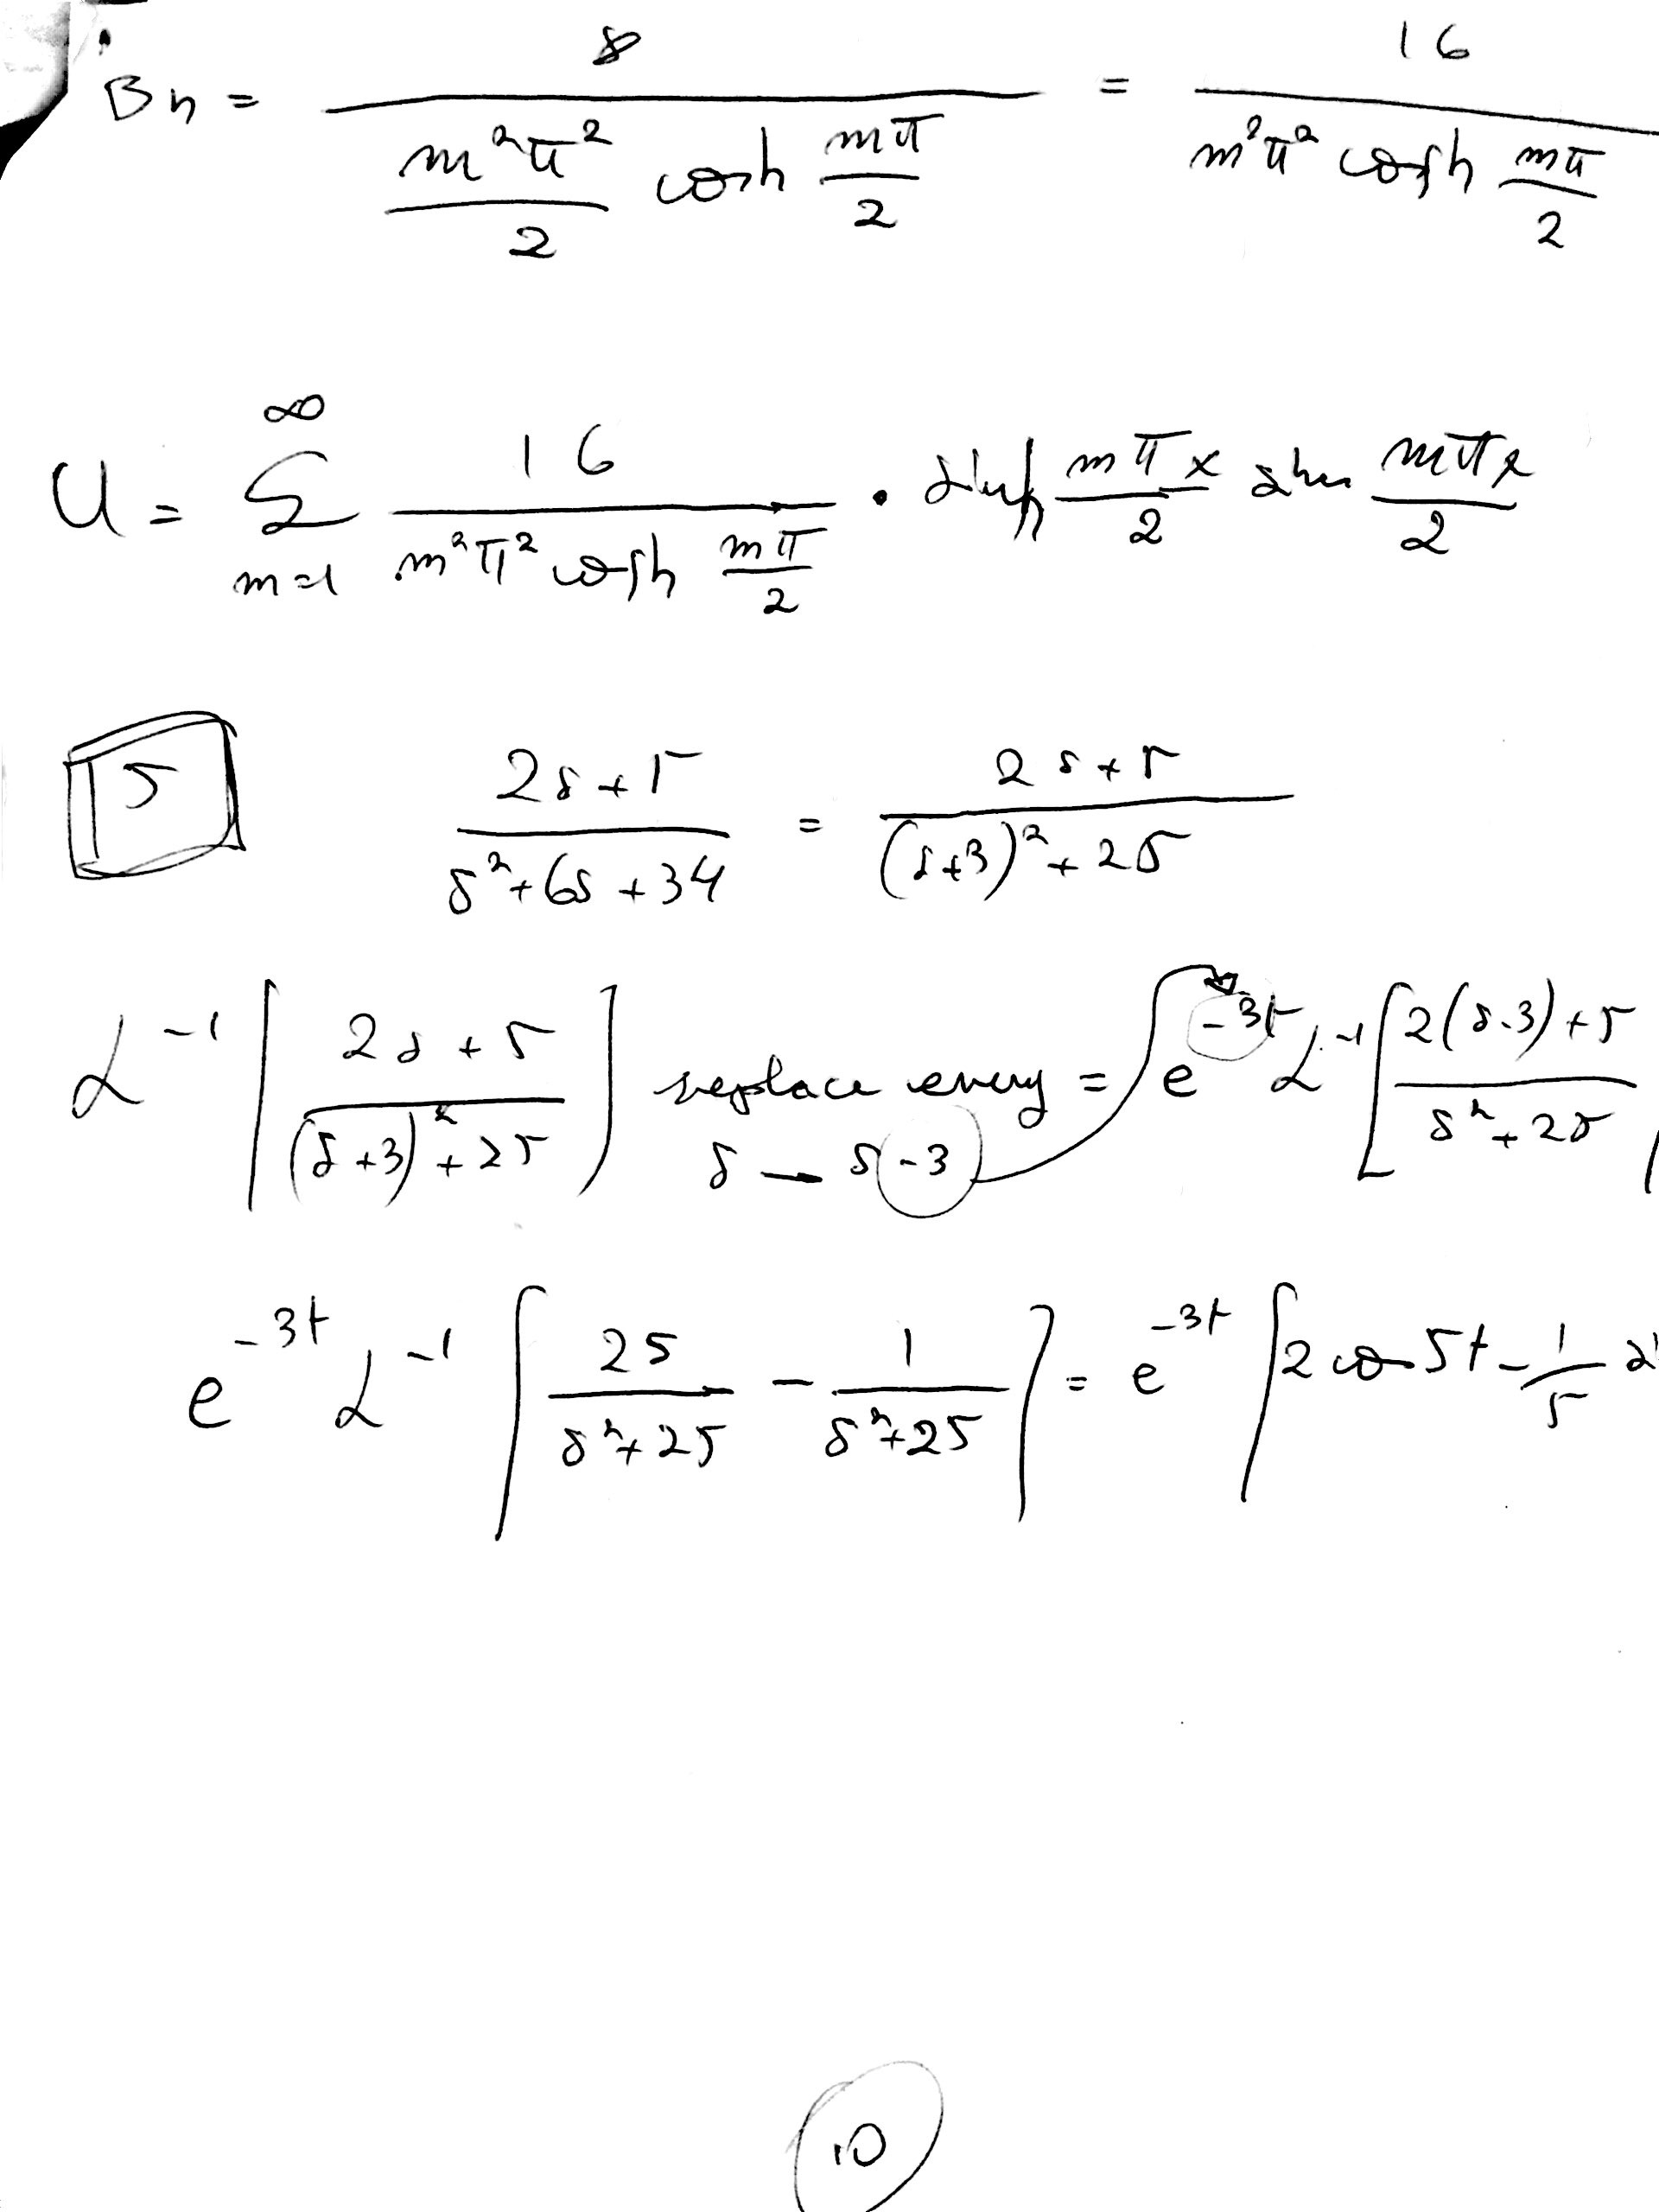 Bn = 8 / (m²π²/2 cosh mπ/2) = 16 / (m²π² cosh mπ/2)
U = ∑_{m=1}^{∞} 16 / (m²π² cosh mπ/2) · sinh mπx/2 sin mπx/2
5 (2s+5) / (s²+6s+34) = (2s+5) / ((s+3)²+25)
L⁻¹ [ (2s+5) / ((s+3)²+25) ] replace every s → s-3 = e^{-3t} L⁻¹ [ (2(s-3)+5) / (s²+25)
e^{-3t} L⁻¹ [ 2s / (s²+25) - 1 / (s²+25) ] = e^{-3t} [ 2 cos 5t - 1/5
10